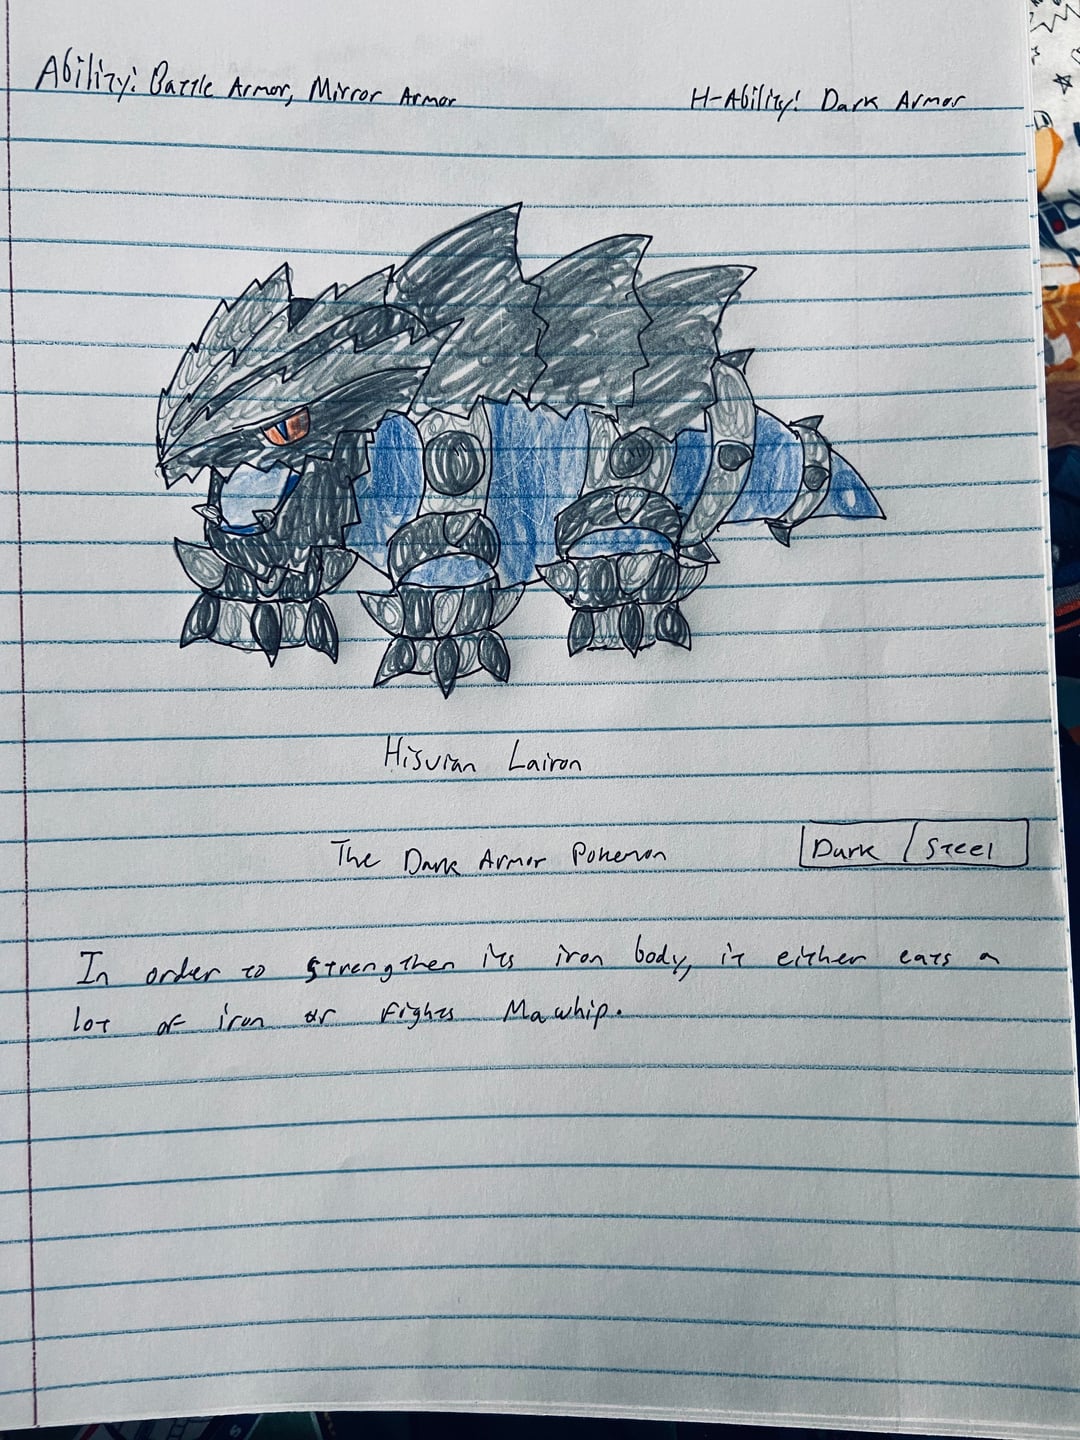 Ability: Battle Armor, Mirror Armor
H-Ability: Dark Armor
Hisuian Lairon
The Dark Armor Pokemon
Dark / Steel
In order to strengthen its iron body, it either eats a
lot of iron or fights Mawhip.